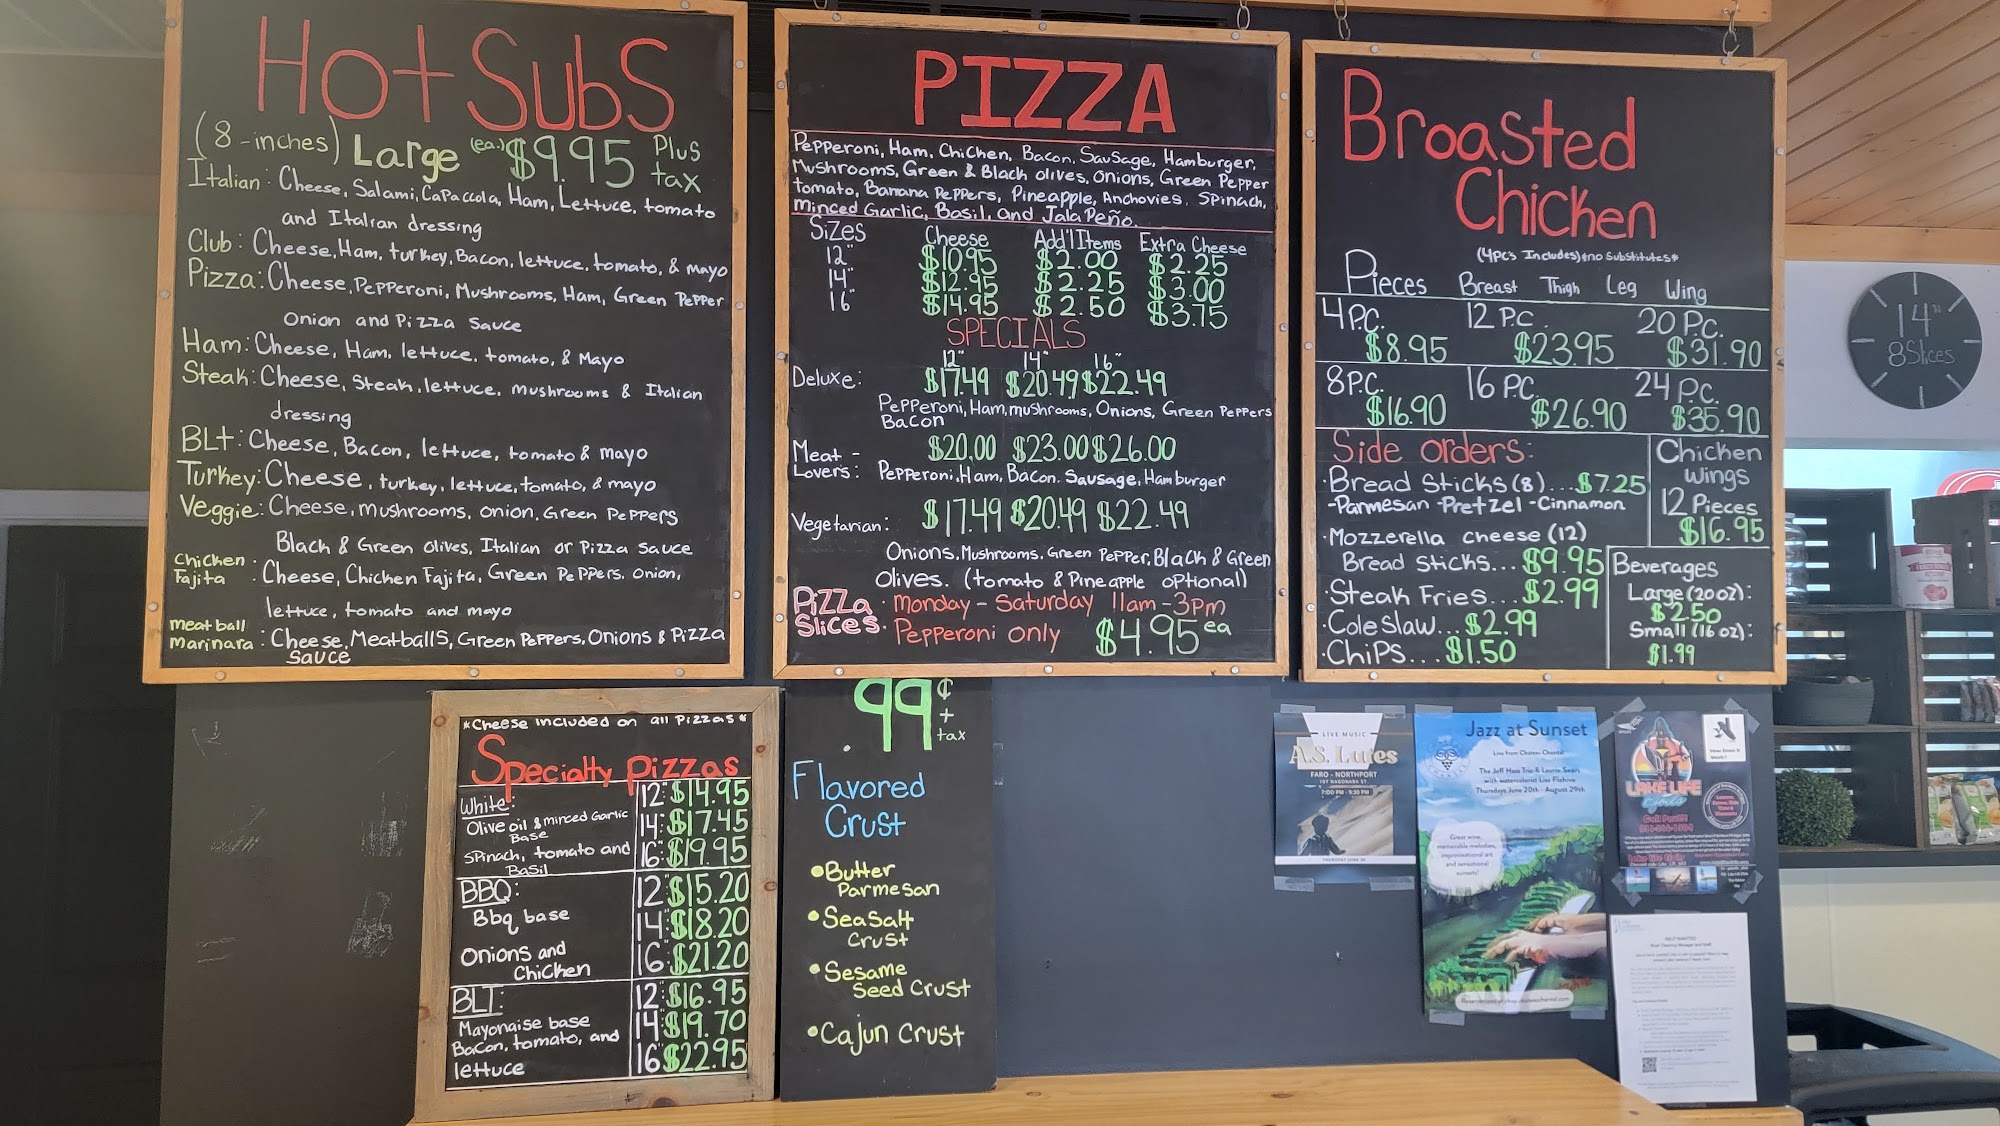 Hot Subs
(8-inches) Large (ea.) $9.95 Plus tax
Italian: Cheese, Salami, Capaccola, Ham, Lettuce, tomato
and Italian dressing
Club: Cheese, Ham, turkey, Bacon, lettuce, tomato, & mayo
Pizza: Cheese, Pepperoni, Mushrooms, Ham, Green Pepper
Onion and Pizza Sauce
Ham: Cheese, Ham, lettuce, tomato, & Mayo
Steak: Cheese, Steak, lettuce, mushrooms & Italian
dressing
BLt: Cheese, Bacon, lettuce, tomato & mayo
Turkey: Cheese, turkey, lettuce, tomato, & mayo
Veggie: Cheese, mushrooms, onion, Green Peppers
Black & Green olives, Italian or Pizza sauce
Chicken Fajita: Cheese, Chicken Fajita, Green Peppers, onion,
lettuce, tomato and mayo
meatball marinara: Cheese, Meatballs, Green Peppers, Onions & Pizza
Sauce
PIZZA
Pepperoni, Ham, Chicken, Bacon, Sausage, Hamburger,
Mushrooms, Green & Black olives, onions, Green Pepper
tomato, Banana Peppers, Pineapple, Anchovies, Spinach,
Minced Garlic, Basil, and Jalapeño.
Sizes Cheese Add'l Items Extra Cheese
12" $10.95 $2.00 $2.25
14" $12.95 $2.25 $3.00
16" $14.95 $2.50 $3.75
SPECIALS
12" 14" 16"
Deluxe: $17.49 $20.49 $22.49
Pepperoni, Ham, mushrooms, Onions, Green Peppers
Bacon
Meat- $20.00 $23.00 $26.00
Lovers: Pepperoni, Ham, Bacon, Sausage, Hamburger
Vegetarian: $17.49 $20.49 $22.49
Onions, Mushrooms, Green Pepper, Black & Green
Olives. (tomato & Pineapple optional)
Pizza Slices · Monday - Saturday 11am - 3pm
· Pepperoni only $4.95 ea
Broasted
Chicken
(4pcs Includes) *no Substitutes*
Pieces Breast Thigh Leg Wing
4 P.C. 12 P.C. 20 P.C.
$8.95 $23.95 $31.90
8 P.C. 16 P.C. 24 P.C.
$16.90 $26.90 $35.90
Side orders:
·Bread Sticks (8)...$7.25
-Parmesan -Pretzel -Cinnamon
·Mozzerella cheese (12)
Bread sticks...$9.95
·Steak Fries...$2.99
·Coleslaw...$2.99
·Chips...$1.50
Chicken
Wings
12 Pieces
$16.95
Beverages
Large (20 oz):
$2.50
Small (16 oz):
$1.99
14"
8 Slices
*Cheese included on all Pizzas*
Specialty Pizzas
White:
Olive oil & minced Garlic
Base
Spinach, tomato and
Basil
12" $14.95
14" $17.45
16" $19.95
BBQ:
Bbq base
Onions and
Chicken
12" $15.20
14" $18.20
16" $21.20
BLT:
Mayonaise base
Bacon, tomato, and
lettuce
12" $16.95
14" $19.70
16" $22.95
.99¢
+
tax
Flavored
Crust
•Butter
Parmesan
•Sea Salt
Crust
•Sesame
Seed Crust
•Cajun Crust
LIVE MUSIC
A.S. Lutes
FARO - NORTHPORT
7:00 PM - 9:30 PM
Jazz at Sunset
Live from Chateau Chantal
The Jeff Haas Trio & Laurie Sears
with watercolorist Lisa Flahive
Thursdays June 20th - August 29th
Great wine,
memorable melodies,
improvisational art
and sensational
sunsets!
LAKE LIFE
HELP WANTED